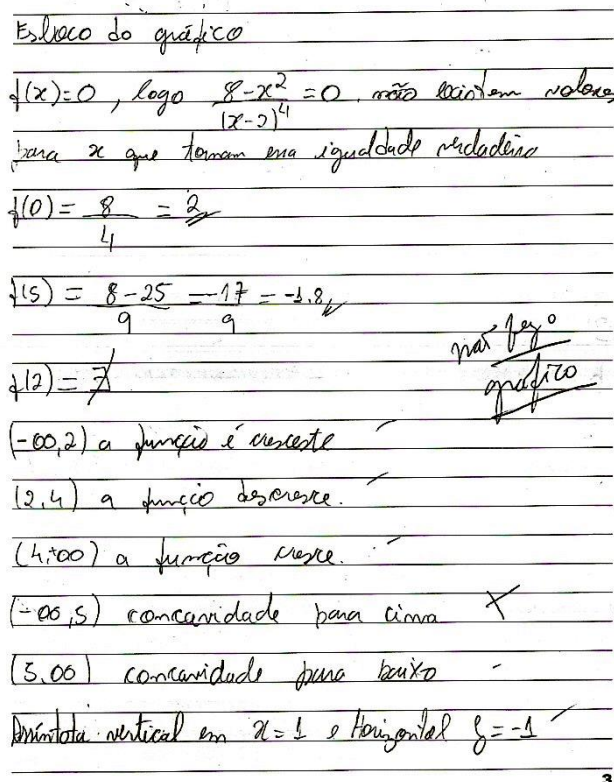 Esboço do gráfico
f(x)=0, logo (8-x²)/(x-2)⁴ = 0. não existem valores
para x que tornam essa igualdade verdadeira
f(0) = 8/4 = 2
f(5) = (8-25)/9 = -17/9 = -1,8
f(2) = ∄
não fez o
gráfico
(-∞,2) a função é crescente
(2,4) a função descresce.
(4,+∞) a função cresce.
(-∞,5) concavidade para cima X
(5,∞) concavidade para baixo
Assíntota vertical em x=1 e Horizontal y=-1
3